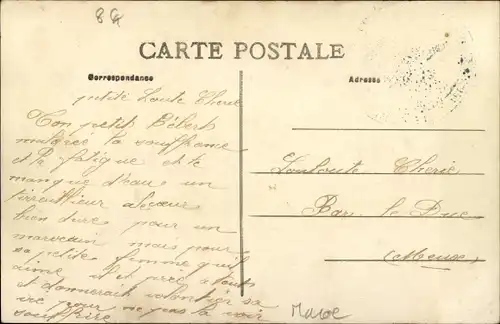 86
CARTE POSTALE
Correspondance
Adresse
petite Loute Cherie
Ton petit Bébert
malgrée la souffrance
et la fatigue et le
manque d'eau un
tirailleur
bien dure pour un
marocain mais pour
sa petite femme qu'il
aime il et prés a tous
et donnerait volontier sa
vie pour ne pas la voir
souffrire
Louloute Cherie
Bar le Duc
(Meuse)
Maroc